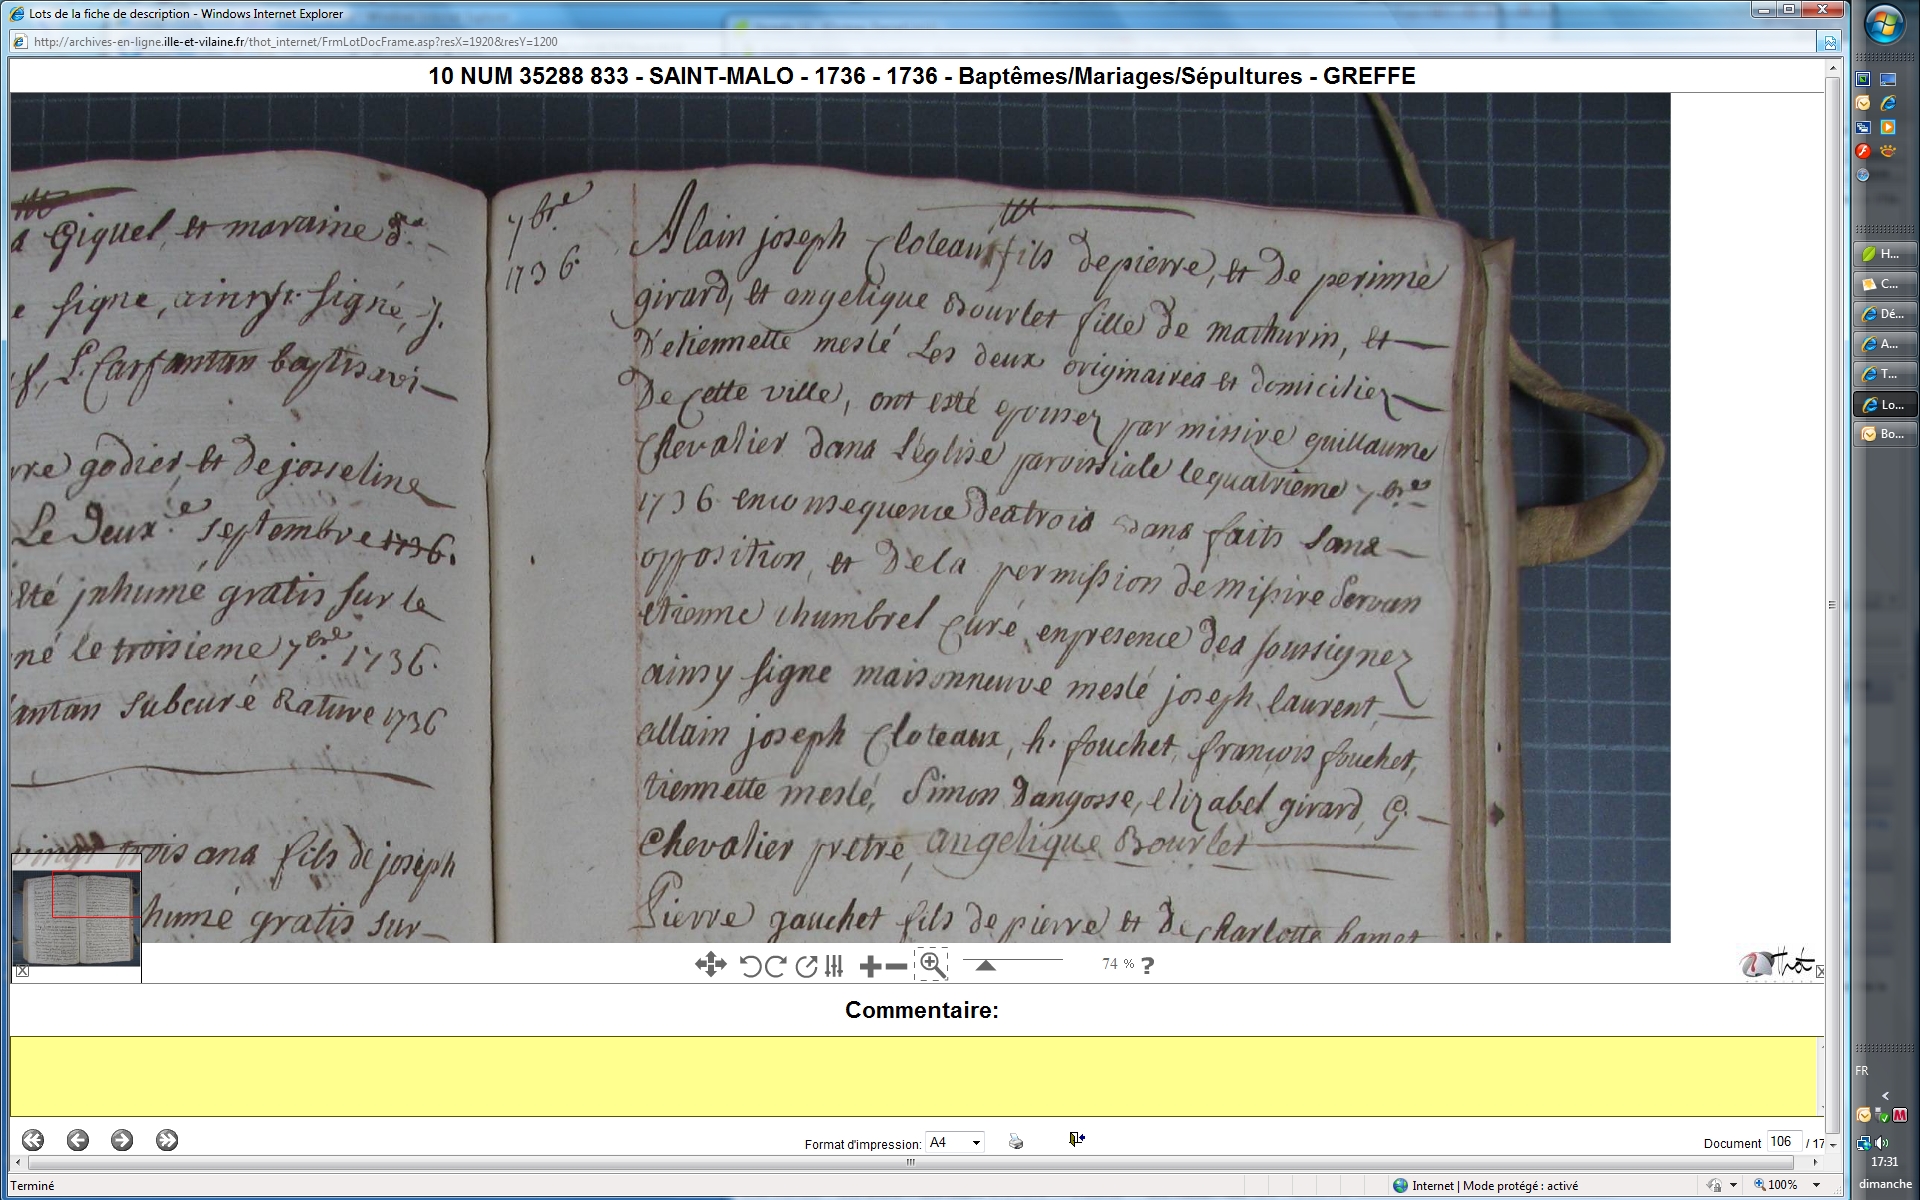 Lots de la fiche de description - Windows Internet Explorer
http://archives-en-ligne.ille-et-vilaine.fr/thot_internet/FrmLotDocFrame.asp?resX=1920&resY=1200
10 NUM 35288 833 - SAINT-MALO - 1736 - 1736 - Baptêmes/Mariages/Sépultures - GREFFE
Giquel, et maraine d.e
e signe, ainsy signé, J.
Carfantan
vre godier, et de josseline
Le Deux.e septembre 1736.
été inhumé gratis sur le
né le troisieme 7bre 1736.
antan subcuré Rature 1736
vingt trois ans fils de joseph
humé gratis sur
7bre
1736.
Alain joseph Cloteaux fils de pierre, et de perinne
girard, et angelique Bourlet fille de mathurin, et
D'etiennette meslé Les deux originaires et domiciliez
De Cette ville, ont esté epousez par missire guillaume
Chevalier dans l'église paroissiale le quatrieme 7bre
1736 en consequence des trois bans faits sans
opposition, et de la permission de Missire Servan
etienne chumbrel Curé, en presence des soussignez
ainsy signe maisonneuve meslé joseph laurent,
allain joseph Cloteaux, h. fouchet, françois fouchet,
tiennette meslé, Simon Dangosse, elizabel girard, G.
Chevalier pretre, angelique Bourlet
Pierre gauchet fils de pierre et de Charlotte hamet
74 % ?
Thot
Commentaire:
Format d'impression: A4
Document 106 / 17
Terminé
Internet | Mode protégé : activé
100%
H...
C...
Dé...
A...
T...
Lo...
Bo...
FR
17:31
dimanche